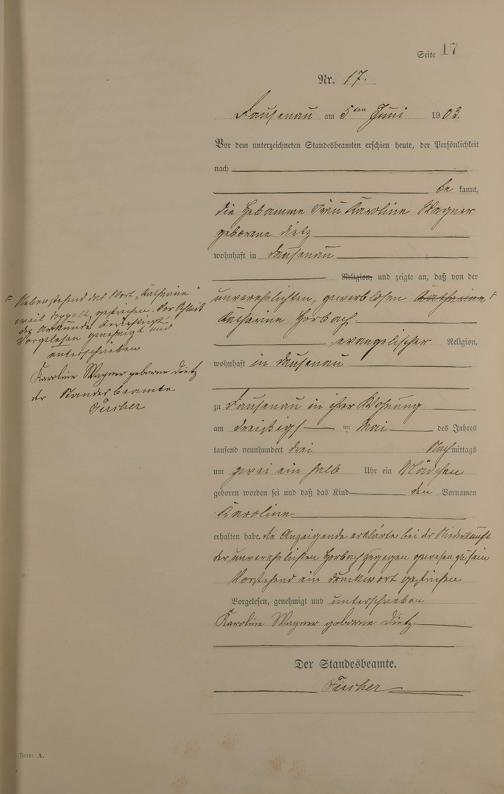 Seite 17
Nr. 17.
Dausenau am 5ten Juni 1903.
Vor dem unterzeichneten Standesbeamten erschien heute, der Persönlichkeit
nach
be kannt,
die Hebamme Frau Karoline Wagner
geborene Dietz
wohnhaft in Dausenau
Religion, und zeigte an, daß von der
unverehelichten, gewerblosen Katharine
Katharine Horbach
evangelischer Religion,
wohnhaft in Dausenau
zu Dausenau in ihrer Wohnung
am dreißigst im Mai des Jahres
tausend neunhundert drei Nachmittags
um zwei ein halb Uhr ein Mädchen
geboren worden sei und daß das Kind den Vornamen
Karoline
erhalten habe. die Anzeigende erklärte bei der Niederkunft
der unverehelichten Horbach zugegen gewesen zu sein
Vorstehend ein Druckwort gestrichen
Vorgelesen, genehmigt und unterschrieben
Karoline Wagner geborene Dietz
Der Standesbeamte.
Nebenstehend das Wort "Katharine"
weil doppelt, gestrichen.
Vorgelesen genehmigt und
unterschrieben
Karoline Wagner geborene Dietz
der Standesbeamte
Form A.